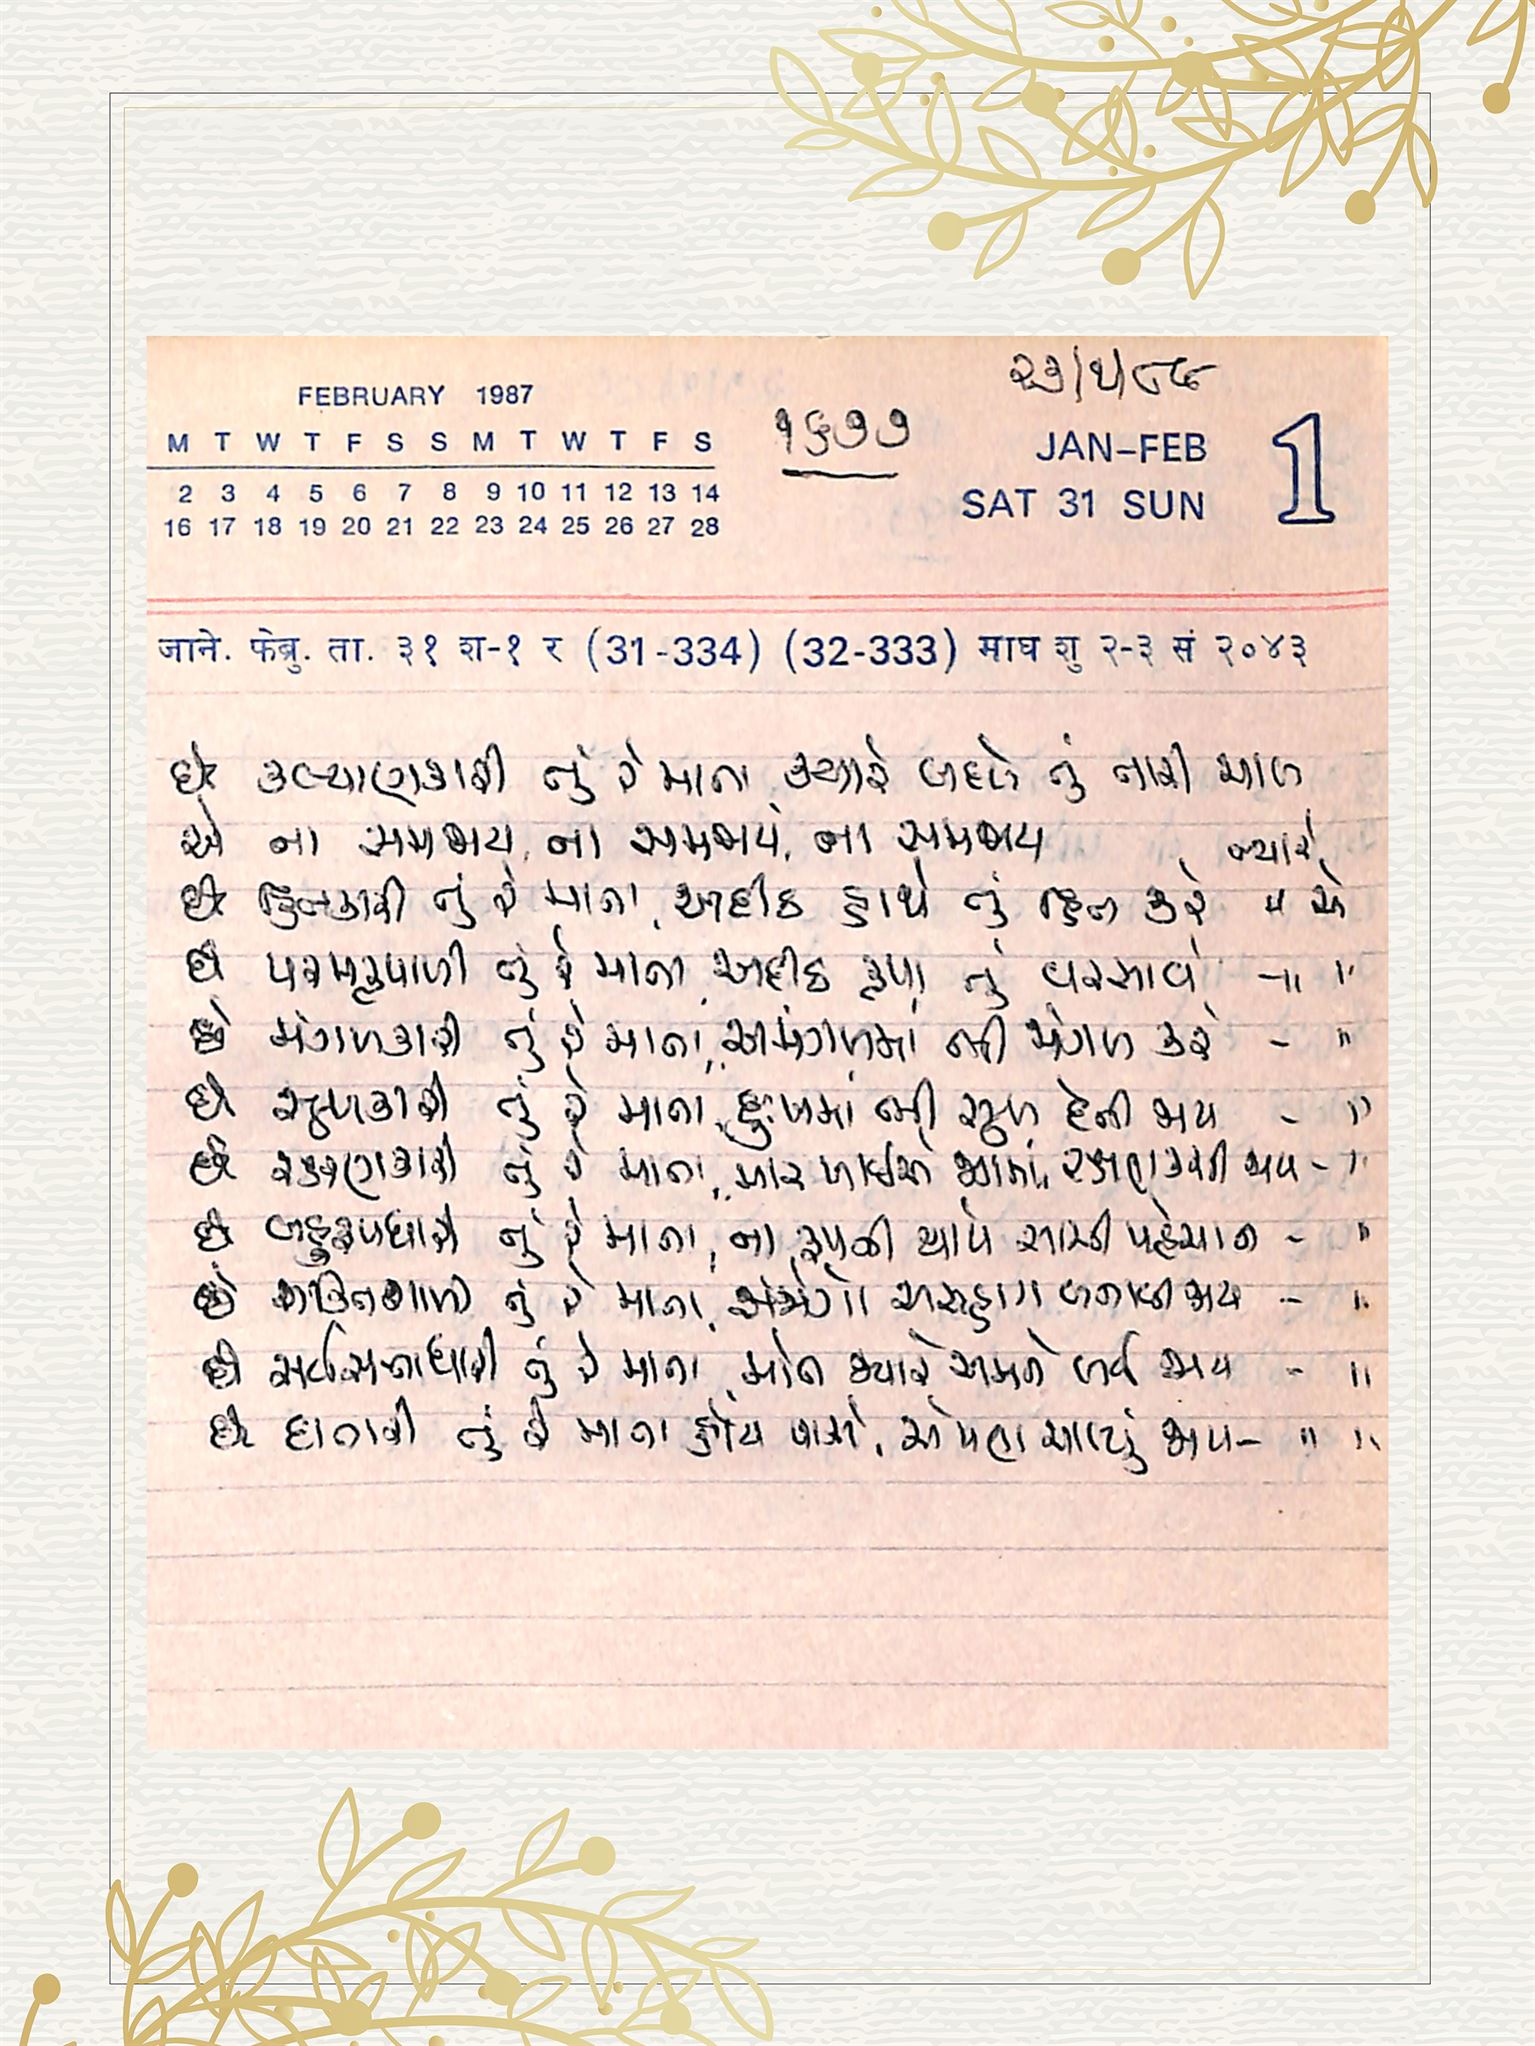 FEBRUARY 1987
M T W T F S S M T W T F S
2 3 4 5 6 7 8 9 10 11 12 13 14
16 17 18 19 20 21 22 23 24 25 26 27 28
૧૬૭૭
૨૩/૧/૮૯
JAN–FEB
SAT 31 SUN 1
जाने. फेब्रु. ता. ३१ श-१ र (31-334) (32-333) माघ शु २-३ सं २०४३
છે કલ્યાણકારી તું રે માતા, ક્યારે બદલે તું તારી ચાલ
એ ના સમજાય, ના સમજાય, ના સમજાય ક્યારે
છે હિતકારી તું રે માતા, અદીઠ હાથે તું હિત કરે " એ
છે પરમકૃપાળી તું રે માતા, અદીઠ કૃપા તું વરસાવે - " "
છે મંગળકારી તું રે માતા, અમંગળમાં ભી મંગળ કરે - "
છે સુખકારી તું રે માતા, દુઃખમાં ભી સુખ દેતી જાય - "
છે રક્ષણકારી તું રે માતા, માર રક્ષણ કરતી જાય - "
છે બહુરૂપધારી તું રે માતા, ના રૂપની થાયે સાચી પહેચાન - "
છે શક્તિશાળી તું રે માતા, બનાવી જાય - "
છે સર્વસત્તાધારી તું રે માતા, જ્યારે અમને ગર્વ જાય - "
છે દાતારી તું રે માતા, એ પણ આપ્યું જાય - " "